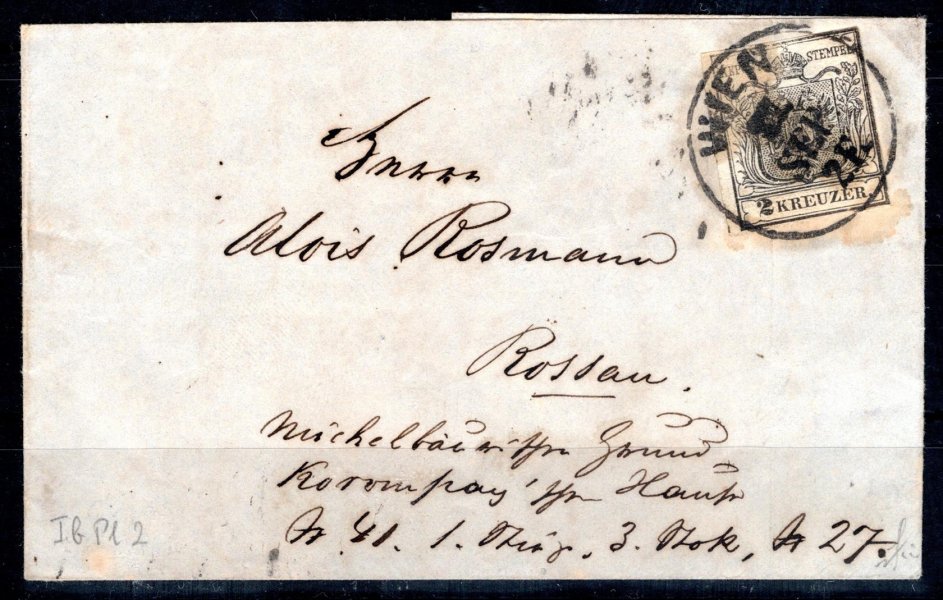 STEMPEL
WIEN
SEP.
2 KREUZER.
Herrn
Alois Rosmann
Rossau.
Michelbäurischen Grund
Korompay'schen Hause
№ 41. 1. Stieg. 3. Stok, № 27.
I b Pl 2